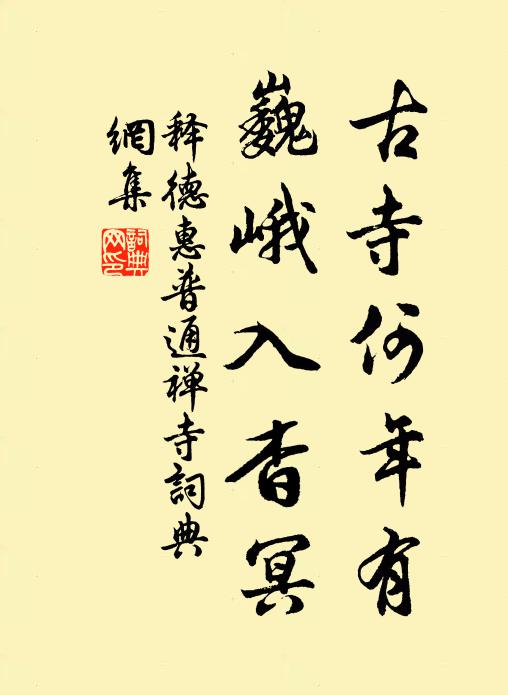 古寺何年有
巍峨入杳冥
释德惠普通禅寺詞典
網集
詞典網印